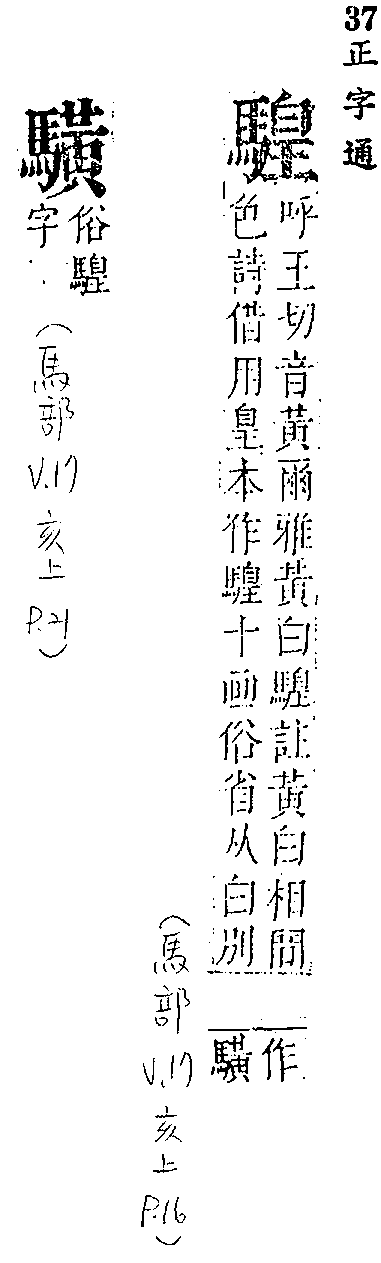 37
正字通
騜
呼王切音黃爾雅黃白騜註黃白相間
色詩借用皇本作騜十画俗省从白別
作
(馬部 V.17 亥上 P.16)
俗騜
字
(馬部 V.17 亥上 P.21)